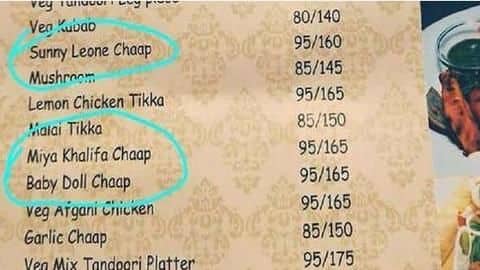 Veg Tandoori Leg piece
Veg Kabab 80/140
Sunny Leone Chaap 95/160
Mushroom 85/145
Lemon Chicken Tikka 95/165
Malai Tikka 85/150
Miya Khalifa Chaap 95/165
Baby Doll Chaap 95/165
Veg Afgani Chicken 95/165
Garlic Chaap 85/150
Veg Mix Tandoori Platter 95/175